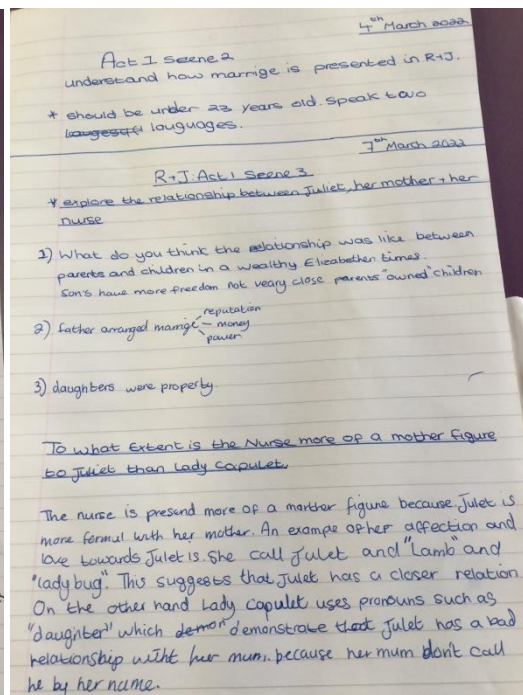 4th March 2022
Act I Scene 2
understand how marrige is presented in R+J.
* should be under 23 years old. speak two
languages.
7th March 2022
R+J: Act I Scene 3
* explore the relationship between Juliet, her mother + her
nurse
1) What do you think the relationship was like between
parents and children in a wealthy Elizabethen times.
Son's have more freedom not veary close parents "owned" children
2) father arranged marrige
reputation
money
power
3) daughters were property.
To what Extent is the Nurse more of a mother figure
to Juliet than Lady Capulet.
The nurse is presend more of a marther figure because Julet is
more formal with her mother. An exampe of her affection and
love towards Julet is. She call Julet and "Lamb" and
"ladybug". This suggests that Julet has a closer relation
On the other hand Lady capulet uses pronouns such as
"daughter" which demon demonstrate that Julet has a bad
relationship witht her mum. because her mum don't call
he by her name.